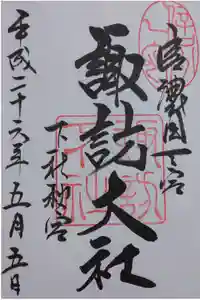 信濃國一之宮
諏訪大社
下社秋宮
平成二十六年五月五日